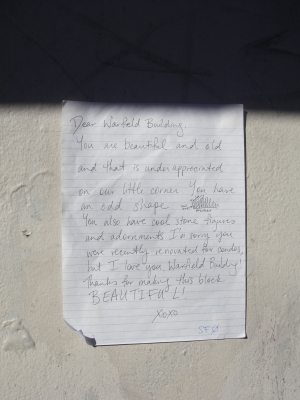 Dear Warfield Building,
You are beautiful and old
and that is underappreciated
on our little corner. You have
an odd shape
You also have cool stone figures
and adornments. I'm sorry you
were recently renovated for condos,
but I love you, Warfield Building!
Thanks for making this block
BEAUTIFUL!
XOXO